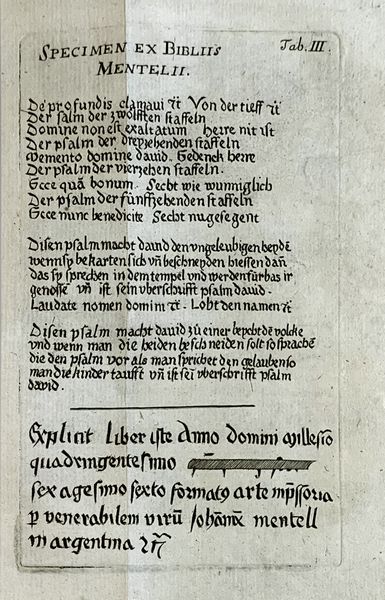 SPECIMEN EX BIBLIIS
Tab. III.
MENTELII.
De profundis clamaui ⁊c̄ Von der tieff ⁊c̄
Der psalm der zwölfften staffeln
Domine non est exaltatum herre nit ist
Der psalm der dreyzehenden staffeln
Memento domine dauid. Gedenck herre
Der psalm der vierzehen staffeln.
Ecce quā bonum. Secht wie wunniglich
Der psalm der fünffzehenden staffeln
Ecce nunc benedicite Secht nu gesegent
Disen psalm macht dauid den vngeleubigen heydē
wenn sy bekarten sich vn̄ beschneyden hiessen dan̄
das sy sprechen in dem tempel vnd werden fürbas ir
genosse vn̄ ist sein vberschrifft psalm dauid.
Laudate nomen domini ⁊c̄. Lobt den namen ⁊c̄
Disen psalm macht dauid zů einer bepbt dē volcke
vnd wenn man die heiden beschneiden solt so sprachē
die den psalm vor als man sprichet den gelauben so
man die kinder taufft vn̄ ist sei vberschrifft psalm
dauid.
Explicit liber iste Anno domini Millesīo
quadringentesimo
sexagesimo sexto formato arte imp̄ssoria
ꝑ venerabilem virū Johānē mentell
in argentina